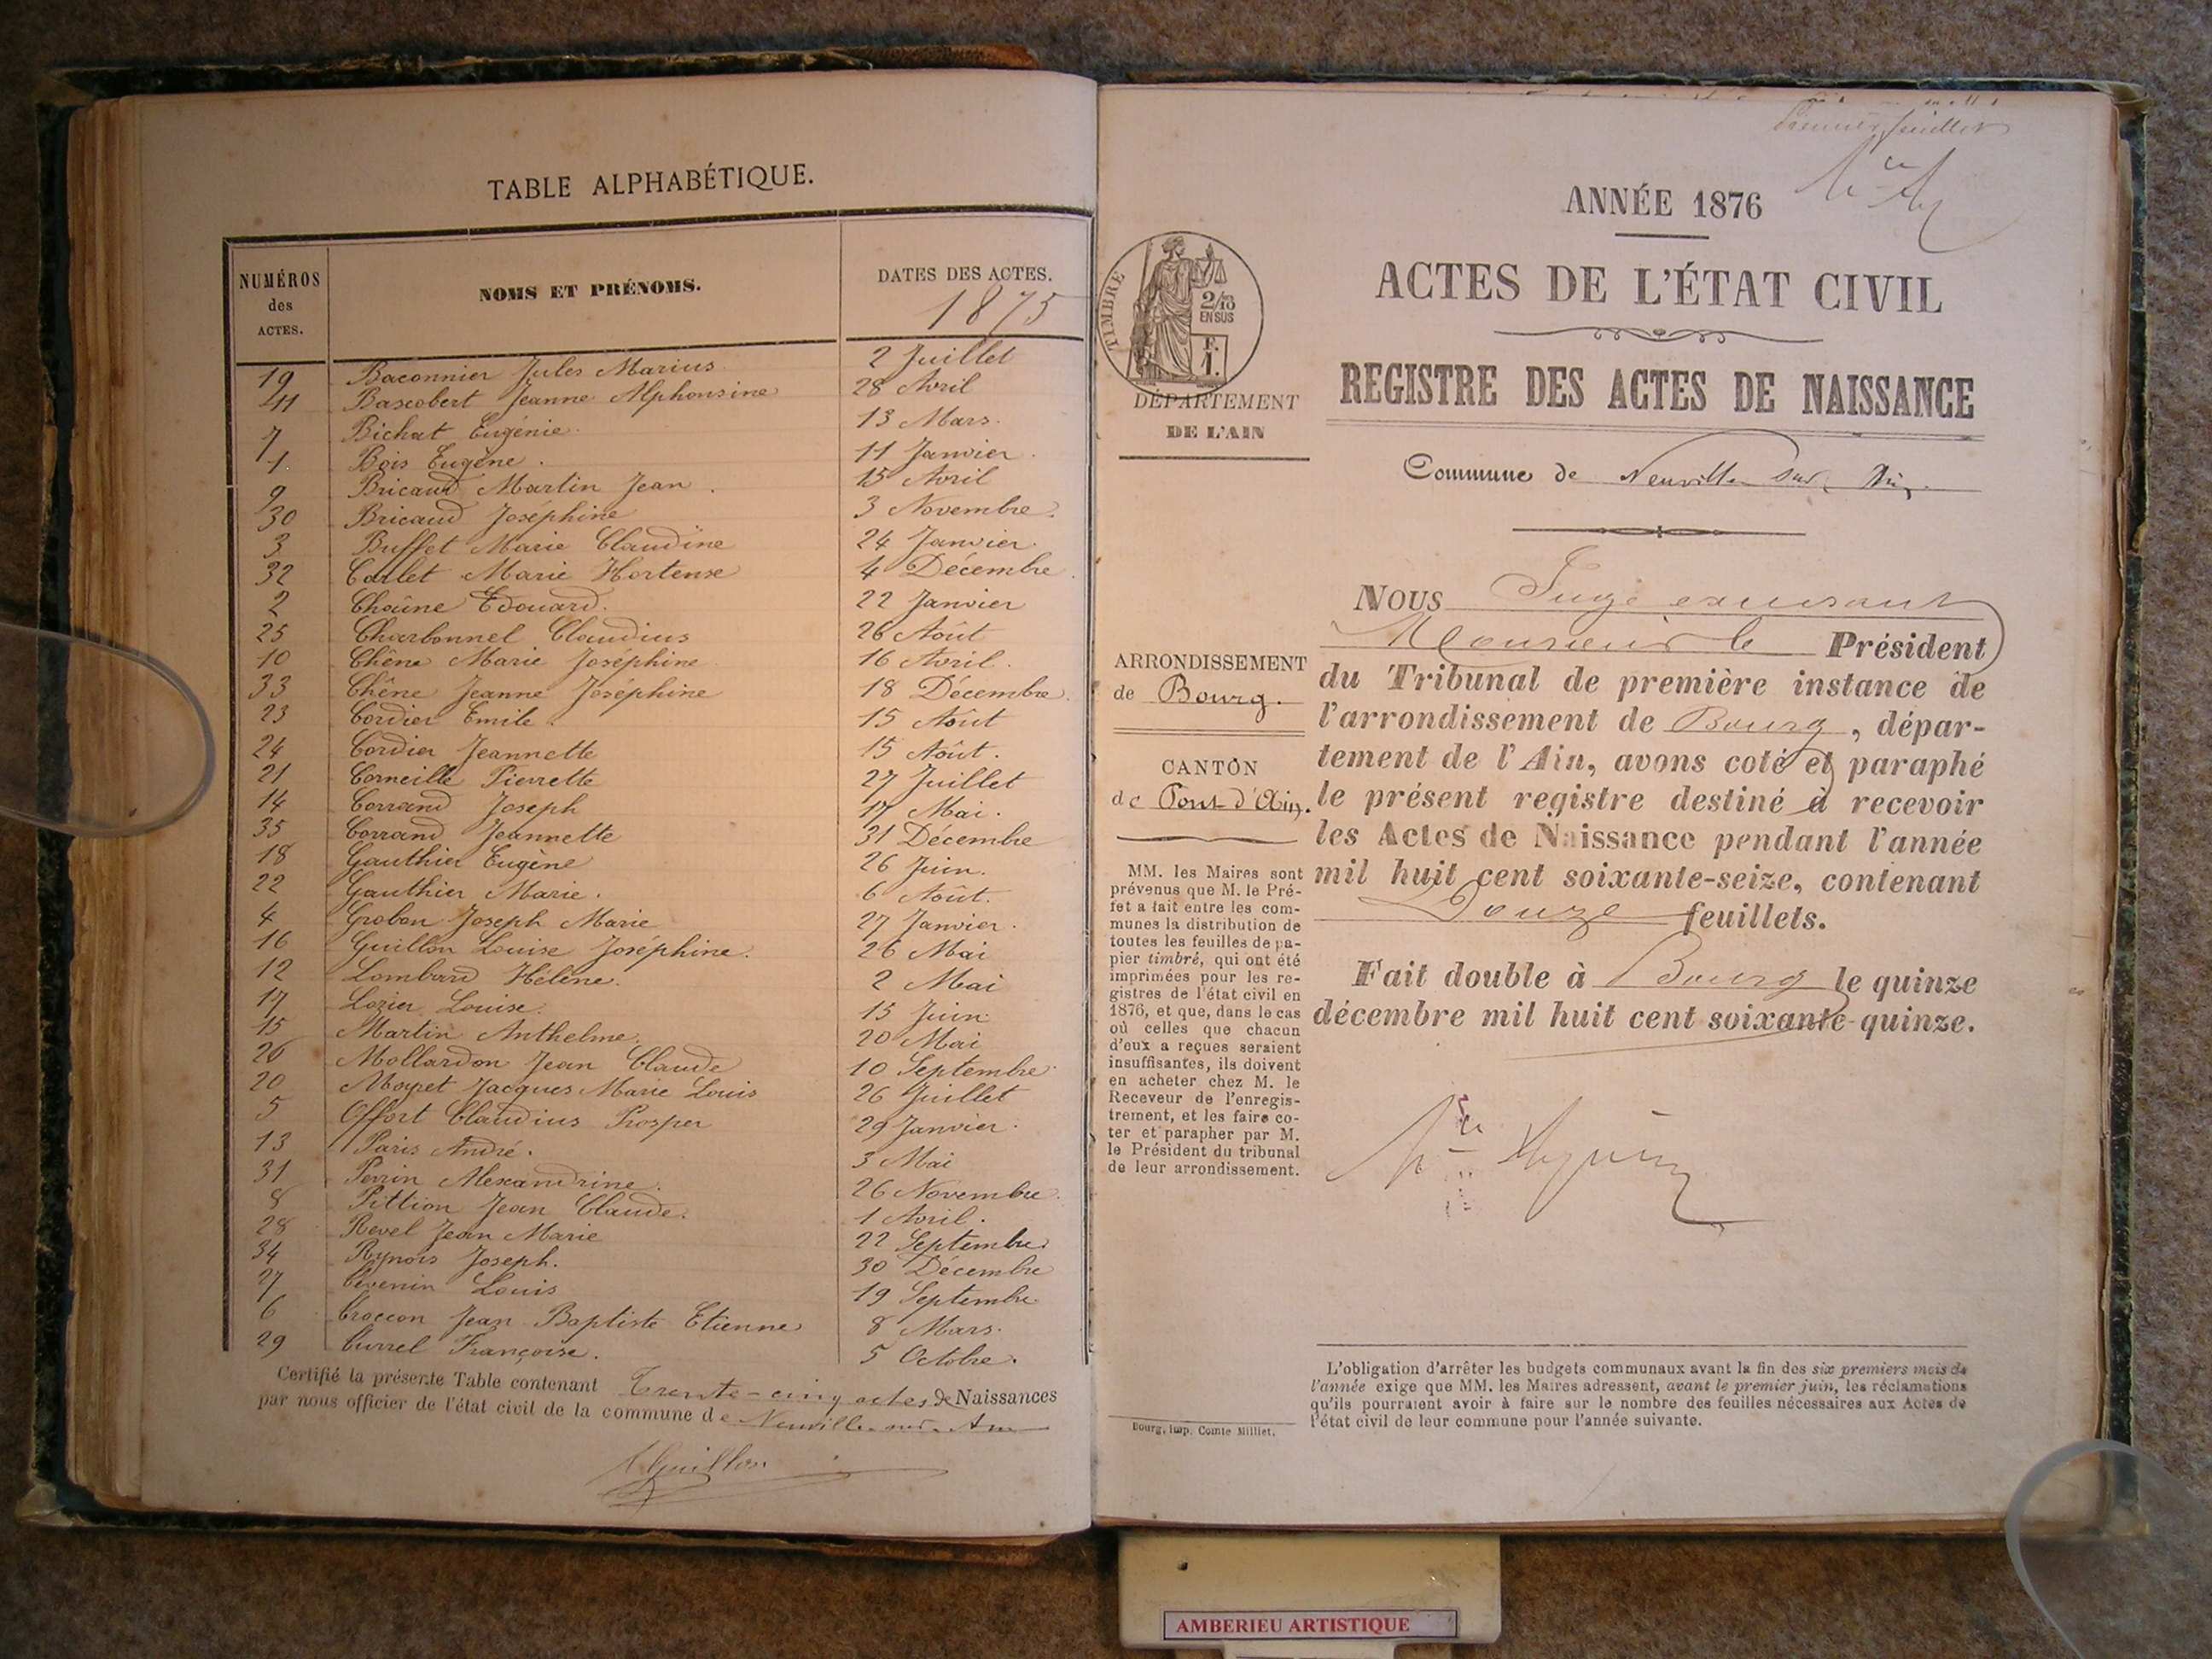 TABLE ALPHABÉTIQUE.
NUMÉROS des ACTES. NOMS ET PRÉNOMS. DATES DES ACTES. 1875
19 Baconnier Jules Marius 2 Juillet
11 Bascobert Jeanne Alphonsine 28 Avril
7 Bichat Eugénie 13 Mars
1 Bois Eugène. 11 Janvier
9 Bricaud Martin Jean. 15 Avril
30 Bricaud Joséphine 3 Novembre.
3 Buffet Marie Claudine 24 Janvier.
32 Carlet Marie Hortense 4 Décembre
2 Chaûne Edouard. 22 Janvier
25 Charbonnel Claudius 26 Août
10 Chêne Marie Joséphine 16 Avril.
33 Chêne Jeanne Joséphine 18 Décembre.
23 Cordier Emile. 15 Août
24 Cordier Jeannette 15 Août.
21 Corneille Pierrette 27 Juillet
14 Corrand Joseph 17 Mai.
35 Corrand Jeannette 31 Décembre
18 Gauthier Eugène 26 Juin.
22 Gauthier Marie. 6 Août.
4 Grobon Joseph Marie 27 Janvier.
16 Guillon Louise Joséphine. 26 Mai
12 Lombard Hélène. 2 Mai
17 Lozier Louise. 15 Juin
15 Martin Anthelme. 20 Mai
26 Mollardon Jean Claude 10 Septembre
20 Moyret Jacques Marie Louis 26 Juillet
5 Offort Claudius Prosper 29 Janvier.
13 Paris André. 3 Mai
31 Perrin Alexandrine. 26 Novembre.
8 Pittion Jean Claude. 1 Avril.
28 Revel Jean Marie 22 Septembre
34 Rynois Joseph. 30 Décembre
27 Tévenin Louis 19 Septembre
6 Troccon Jean Baptiste Etienne 8 Mars.
29 Turrel Françoise. 5 Octobre.
Certifié la présente Table contenant Trente-cinq actes de Naissances
par nous officier de l'état civil de la commune de Neuville-sur-Ain
Guillon
Premier feuillet
ANNÉE 1876
TIMBRE
2/10
EN SUS
F.
1.
ACTES DE L'ÉTAT CIVIL
DÉPARTEMENT
DE L'AIN
REGISTRE DES ACTES DE NAISSANCE
Commune de Neuville sur Ain.
ARRONDISSEMENT
de Bourg.
CANTON
de Pont d'Ain.
MM. les Maires sont
prévenus que M. le Pré-
fet a fait entre les com-
munes la distribution de
toutes les feuilles de pa-
pier timbré, qui ont été
imprimées pour les re-
gistres de l'état civil en
1876, et que, dans le cas
où celles que chacun
d'eux a reçues seraient
insuffisantes, ils doivent
en acheter chez M. le
Receveur de l'enregis-
trement, et les faire co-
ter et parapher par M.
le Président du tribunal
de leur arrondissement.
Bourg, imp. Comte Milliet.
NOUS Juge excusant
Monsieur le Président
du Tribunal de première instance de
l'arrondissement de Bourg, dépar-
tement de l'Ain, avons coté et paraphé
le présent registre destiné à recevoir
les Actes de Naissance pendant l'année
mil huit cent soixante-seize, contenant
Douze feuillets.
Fait double à Bourg le quinze
décembre mil huit cent soixante-quinze.
L'obligation d'arrêter les budgets communaux avant la fin des six premiers mois de
l'année exige que MM. les Maires adressent, avant le premier juin, les réclamations
qu'ils pourraient avoir à faire sur le nombre des feuilles nécessaires aux Actes de
l'état civil de leur commune pour l'année suivante.
AMBERIEU ARTISTIQUE